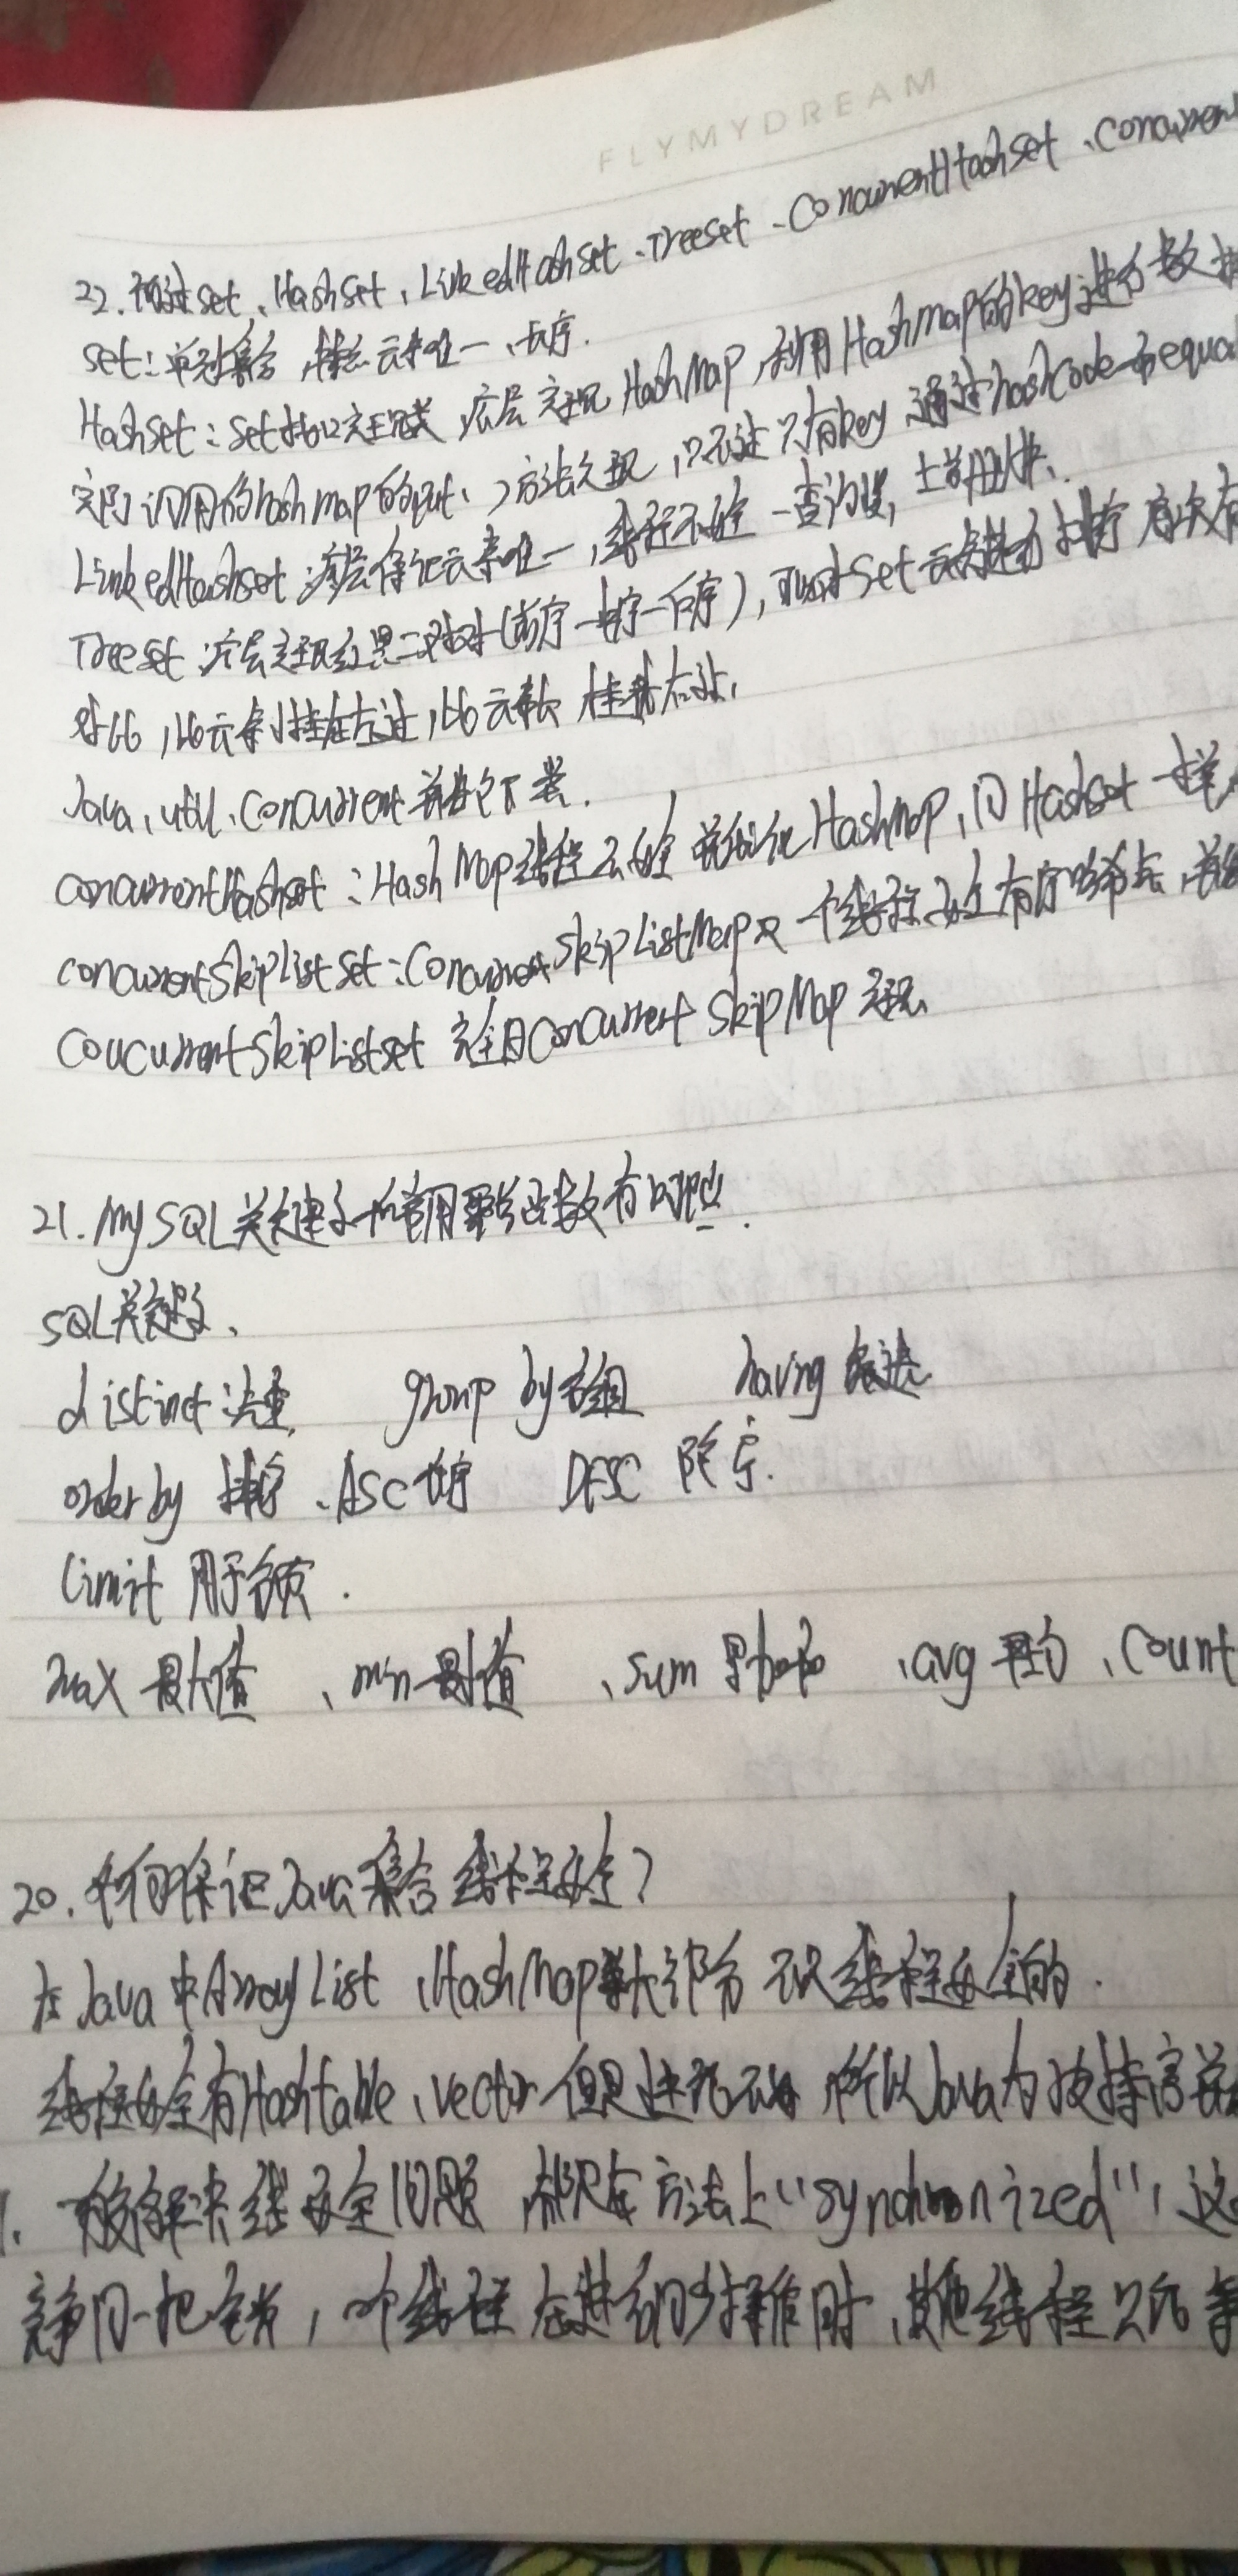 FLYMYDREAM
22. set、HashSet、LinkedHashSet、TreeSet、ConcurrentHashset、Concurren
set：单列集合，元素唯一、无序.
HashSet：set接口实现类，底层实现HashMap，利用HashMap的key进行数
调用的hashmap的put()方法实现，只不过只有key，通过hashCode和equa
LinkedHashset 底层保证元素唯一，线程不安全 - 查询慢，增删快、
Treeset 底层实现红黑二叉树(前序-中序-后序)，可以对Set元素进行排序
对比，比元素小挂在左边，比元素大挂在右边，
Java.util.concurrent 并发包下类.
concurrentHashSet：HashMap线程安全 HashMap，同HashSet一样
concurrentSkipListSet：ConcurrentSkipListMap 一个线程安全有序哈希表，
CoucurrentSkipListset 使用ConcurrentSkipMap实现
21. MySQL关键字和常用聚合函数有哪些.
SQL关键字、
distinct 去重 group by 分组 having
order by 排序、ASC 升序 DESC 降序.
limit 用于分页.
max 最大值、min 最小值、sum 、avg 平均、count
20. 如何保证Java集合线程安全？
在Java中ArrayList、HashMap等大部分不是线程安全的.
线程安全有Hashtable、vector但是性能不好，所以Java为支持高并
1. 解决线程安全问题，就是在方法上"synchronized"，这
竞争同一把锁，一个线程在进行同步操作时、其他线程只能等